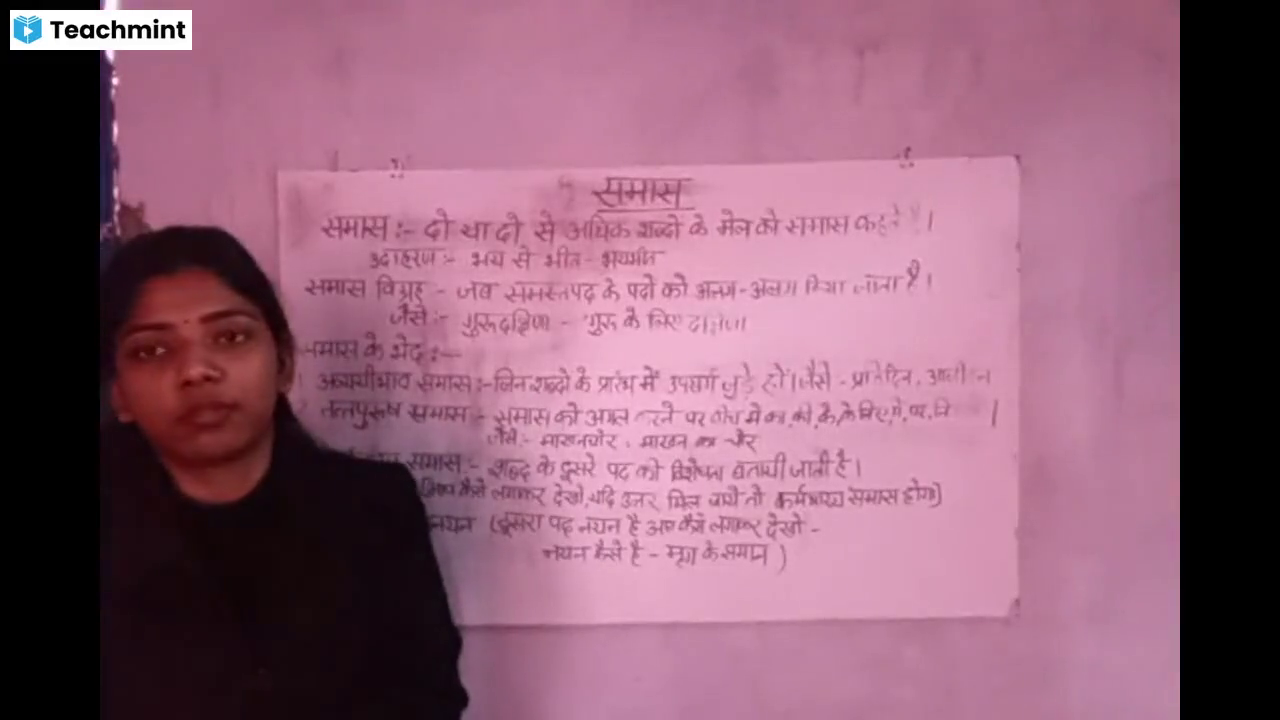 Teachmint
समास
समास :- दो या दो से अधिक शब्दो के मेल को समास कहते
उदाहरण :- भय से भीत - भयभीत
समास विग्रह - जब समस्तपद के पदो को अलग-अलग किया जाता है।
जैसे :- गुरुदक्षिणा - गुरु के लिए दक्षिणा
समास के भेद :-
अव्ययीभाव समास :- जिन शब्दो के प्रारंभ में उपसर्ग जुड़े हों। जैसे - प्रतिदिन,
तत्पुरुष समास - समास को अलग करने पर बीच मे का, की, के, के लिए, मे, पर,
जैसे - माखनचोर, माखन का चोर
समास :- शब्द के दूसरे पद की विशेषता बतायी जाती है।
कैसे लगाकर देखो, यदि उत्तर मिल जाये तो कर्मधारय समास होगा)
नयन (दूसरा पद नयन है अब कैसे लगाकर देखो -
नयन कैसे है - मृग के समान )